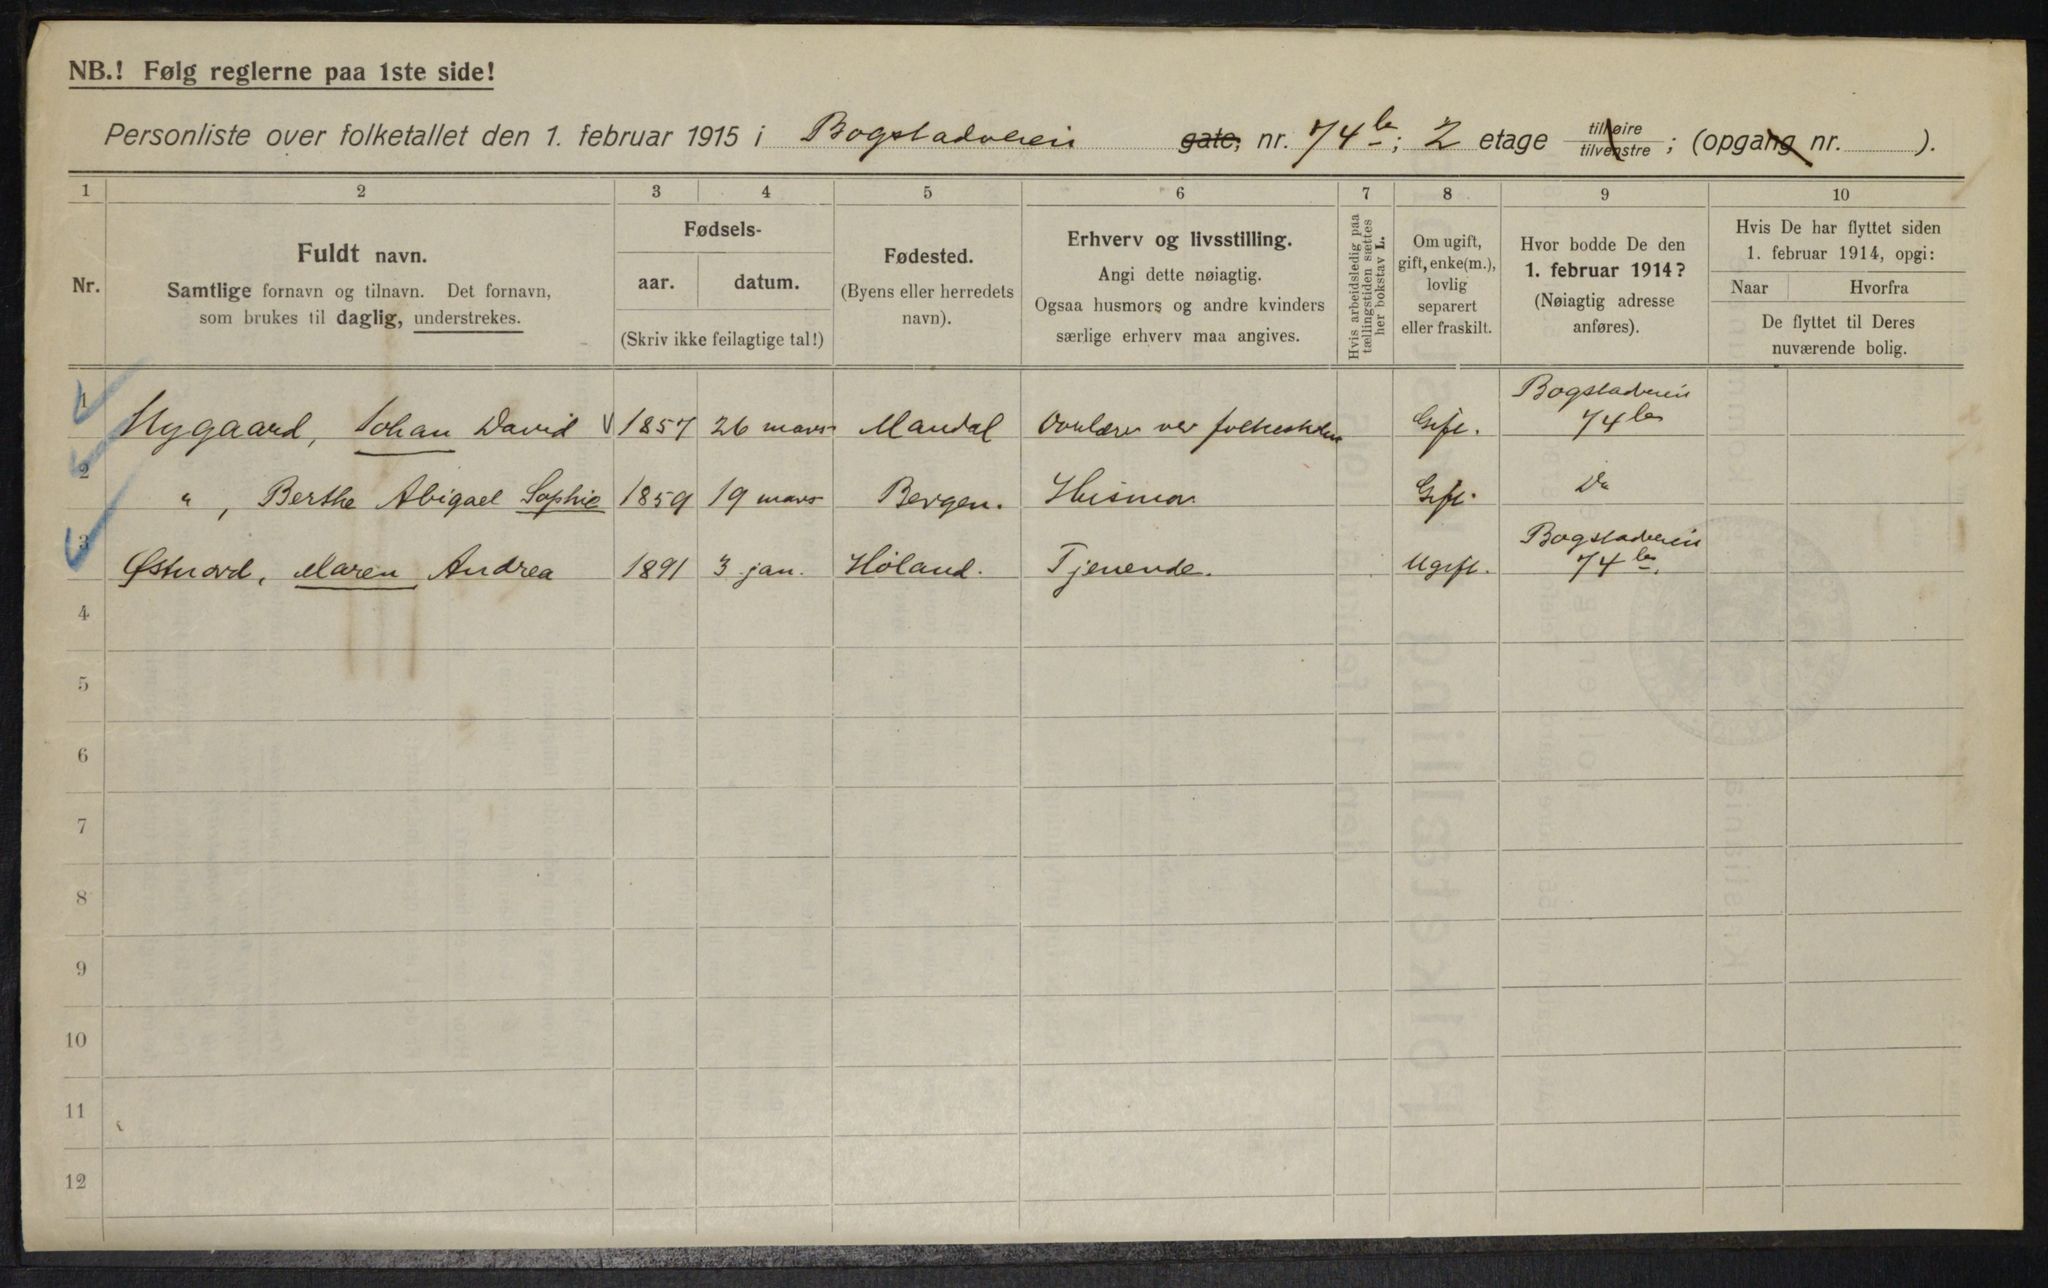 NB.! Følg reglerne paa 1ste side!
Personliste over folketallet den 1. februar 1915 i Bogstadveien gate, nr. 74b; 2 etage tilhøire tilvenstre; (opgang nr. ).
1 2 3 4 5 6 7 8 9 10
Nr.
Fuldt navn.
Samtlige fornavn og tilnavn. Det fornavn,
som brukes til daglig, understrekes.
Fødsels-
aar. datum.
(Skriv ikke feilagtige tal!)
Fødested.
(Byens eller herredets
navn).
Erhverv og livsstilling.
Angi dette nøiagtig.
Ogsaa husmors og andre kvinders
særlige erhverv maa angives.
Hvis arbeidsledig paa
tællingstiden sættes
her bokstav L.
Om ugift,
gift, enke(m.),
lovlig
separert
eller fraskilt.
Hvor bodde De den
1. februar 1914?
(Nøiagtig adresse
anføres).
Hvis De har flyttet siden
1. februar 1914, opgi:
Naar Hvorfra
De flyttet til Deres
nuværende bolig.
1 Nygaard, Johan David 1857 26 mars Mandal Overlærer ved folkeskolen Gift. Bogstadveien
74b
2 " , Berthe Abigael Sophie 1859 19 mars Bergen. Husmor Gift. Do
3 Østnord, Maren Andrea 1891 3 jan. Høland. Tjenende. Ugift. Bogstadveien
74b.
4
5
6
7
8
9
10
11
12